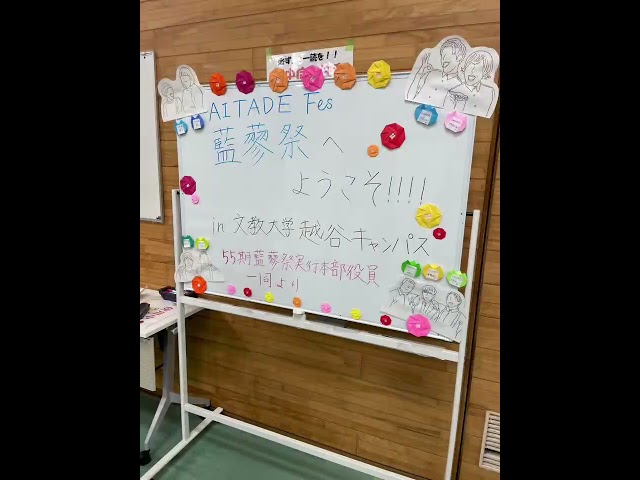 一読を！！
AITADE Fes
藍蓼祭へ
ようこそ!!!!
in 文教大学越谷キャンパス
55期藍蓼祭実行本部役員
一同より